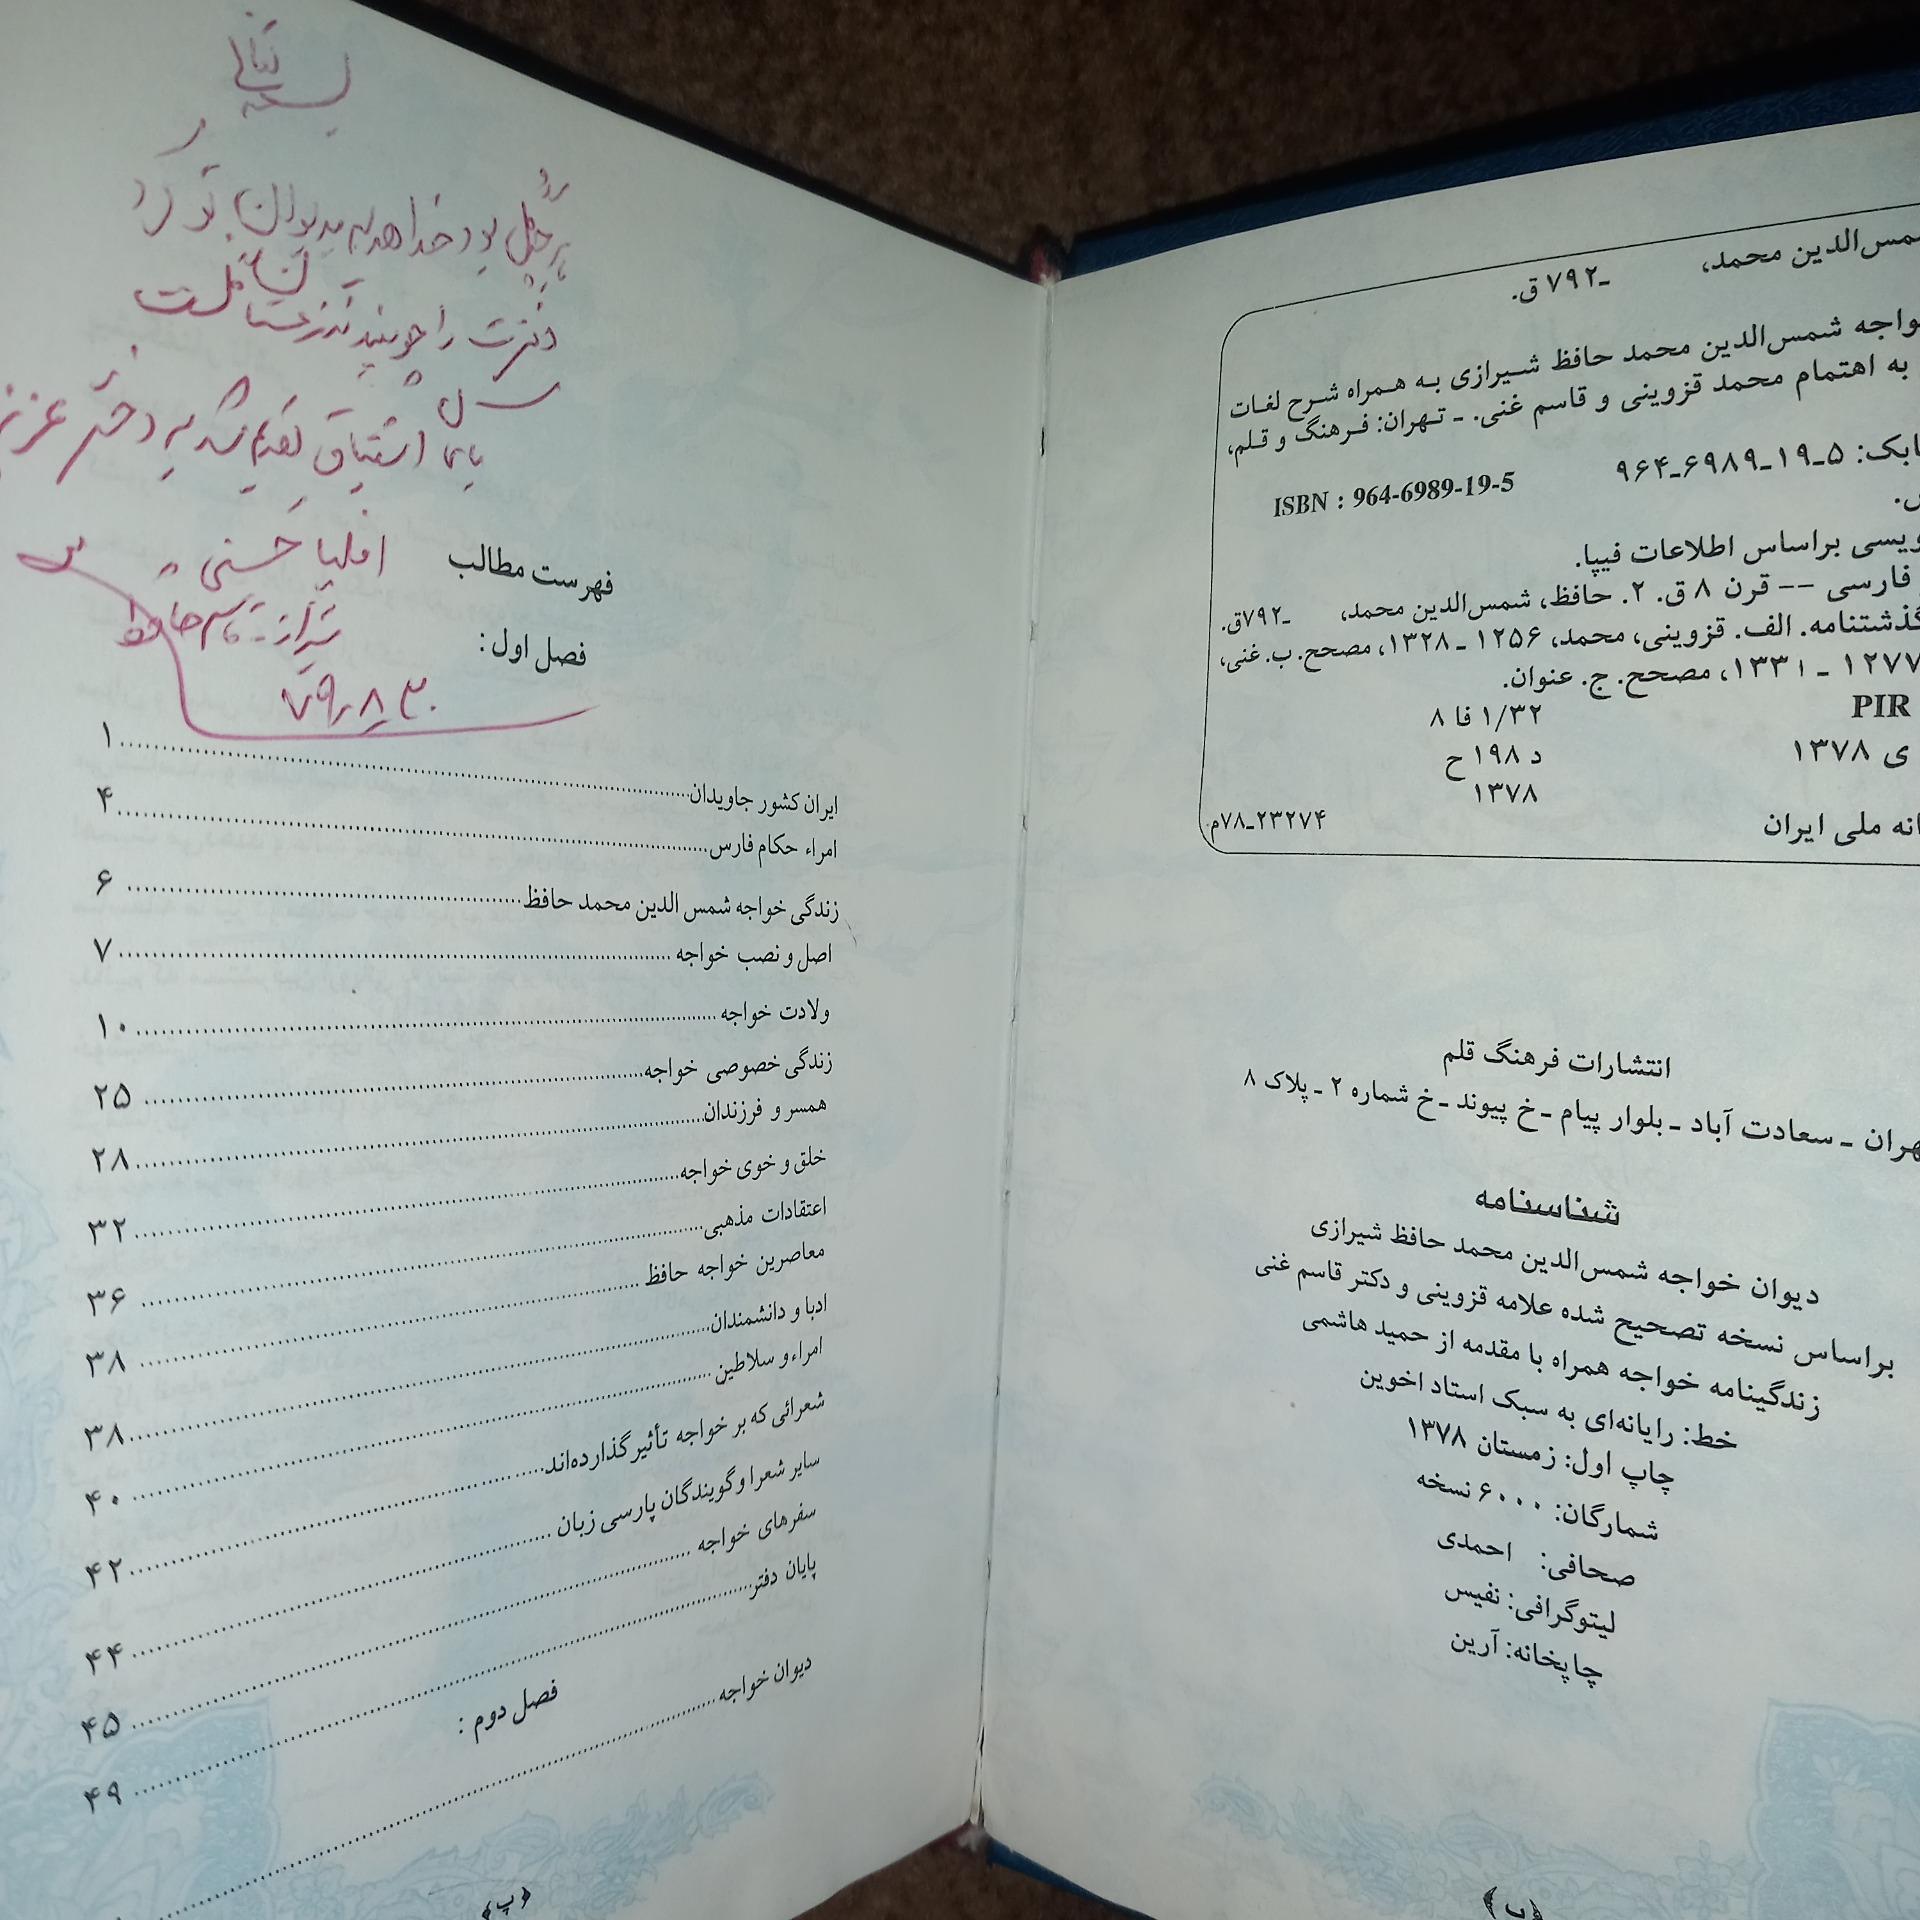 شمس‌الدین محمد، ـ۷۹۲ ق.
خواجه شمس‌الدین محمد حافظ شیرازی به همراه شرح لغات
به اهتمام محمد قزوینی و قاسم غنی. ـ تهران: فرهنگ و قلم،
شابک: ۵ـ۱۹ـ۶۹۸۹ـ۹۶۴ ISBN : 964-6989-19-5
براساس اطلاعات فیپا.
فارسی -- قرن ۸ ق. ۲. حافظ، شمس‌الدین محمد، ـ۷۹۲ق.
الف. قزوینی، محمد، ۱۲۵۶ ـ ۱۳۲۸، مصحح. ب. غنی،
۱۲۷۷ ـ ۱۳۳۱، مصحح. ج. عنوان.
PIR ۱/۳۲ فا ۸
ی ۱۳۷۸ د ۱۹۸ ح
۱۳۷۸
ملی ایران ۲۳۲۷۴ـ۷۸م
انتشارات فرهنگ قلم
تهران ـ سعادت آباد ـ بلوار پیام ـ خ پیوند ـ خ شماره ۲ ـ پلاک ۸
شناسنامه
دیوان خواجه شمس‌الدین محمد حافظ شیرازی
براساس نسخه تصحیح شده علامه قزوینی و دکتر قاسم غنی
زندگینامه خواجه همراه با مقدمه از حمید هاشمی
خط: رایانه‌ای به سبک استاد اخوین
چاپ اول: زمستان ۱۳۷۸
شمارگان: ۶۰۰۰ نسخه
صحافی: احمدی
لیتوگرافی: نفیس
چاپخانه: آرین
﴿ب﴾
بسمه تعالی
بود به دیوان تو کرد
دفترت را
با اشتیاق تقدیم شد به دختر عزیز
حسنی
شیراز ـ حافظ
۷۹٫۸٫۳۰
فهرست مطالب
فصل اول :
ایران کشور جاویدان ۱
امراء حکام فارس ۴
زندگی خواجه شمس الدین محمد حافظ ۶
اصل و نصب خواجه ۷
ولادت خواجه ۱۰
زندگی خصوصی خواجه ۲۵
همسر و فرزندان ۲۸
خلق و خوی خواجه ۳۲
اعتقادات مذهبی ۳۶
معاصرین خواجه حافظ ۳۸
ادبا و دانشمندان ۳۸
امراء و سلاطین ۴۰
شعرائی که بر خواجه تأثیر گذارده‌اند ۴۲
سایر شعرا و گویندگان پارسی زبان ۴۴
سفرهای خواجه ۴۵
پایان دفتر ۴۹
فصل دوم :
دیوان خواجه
﴿پ﴾